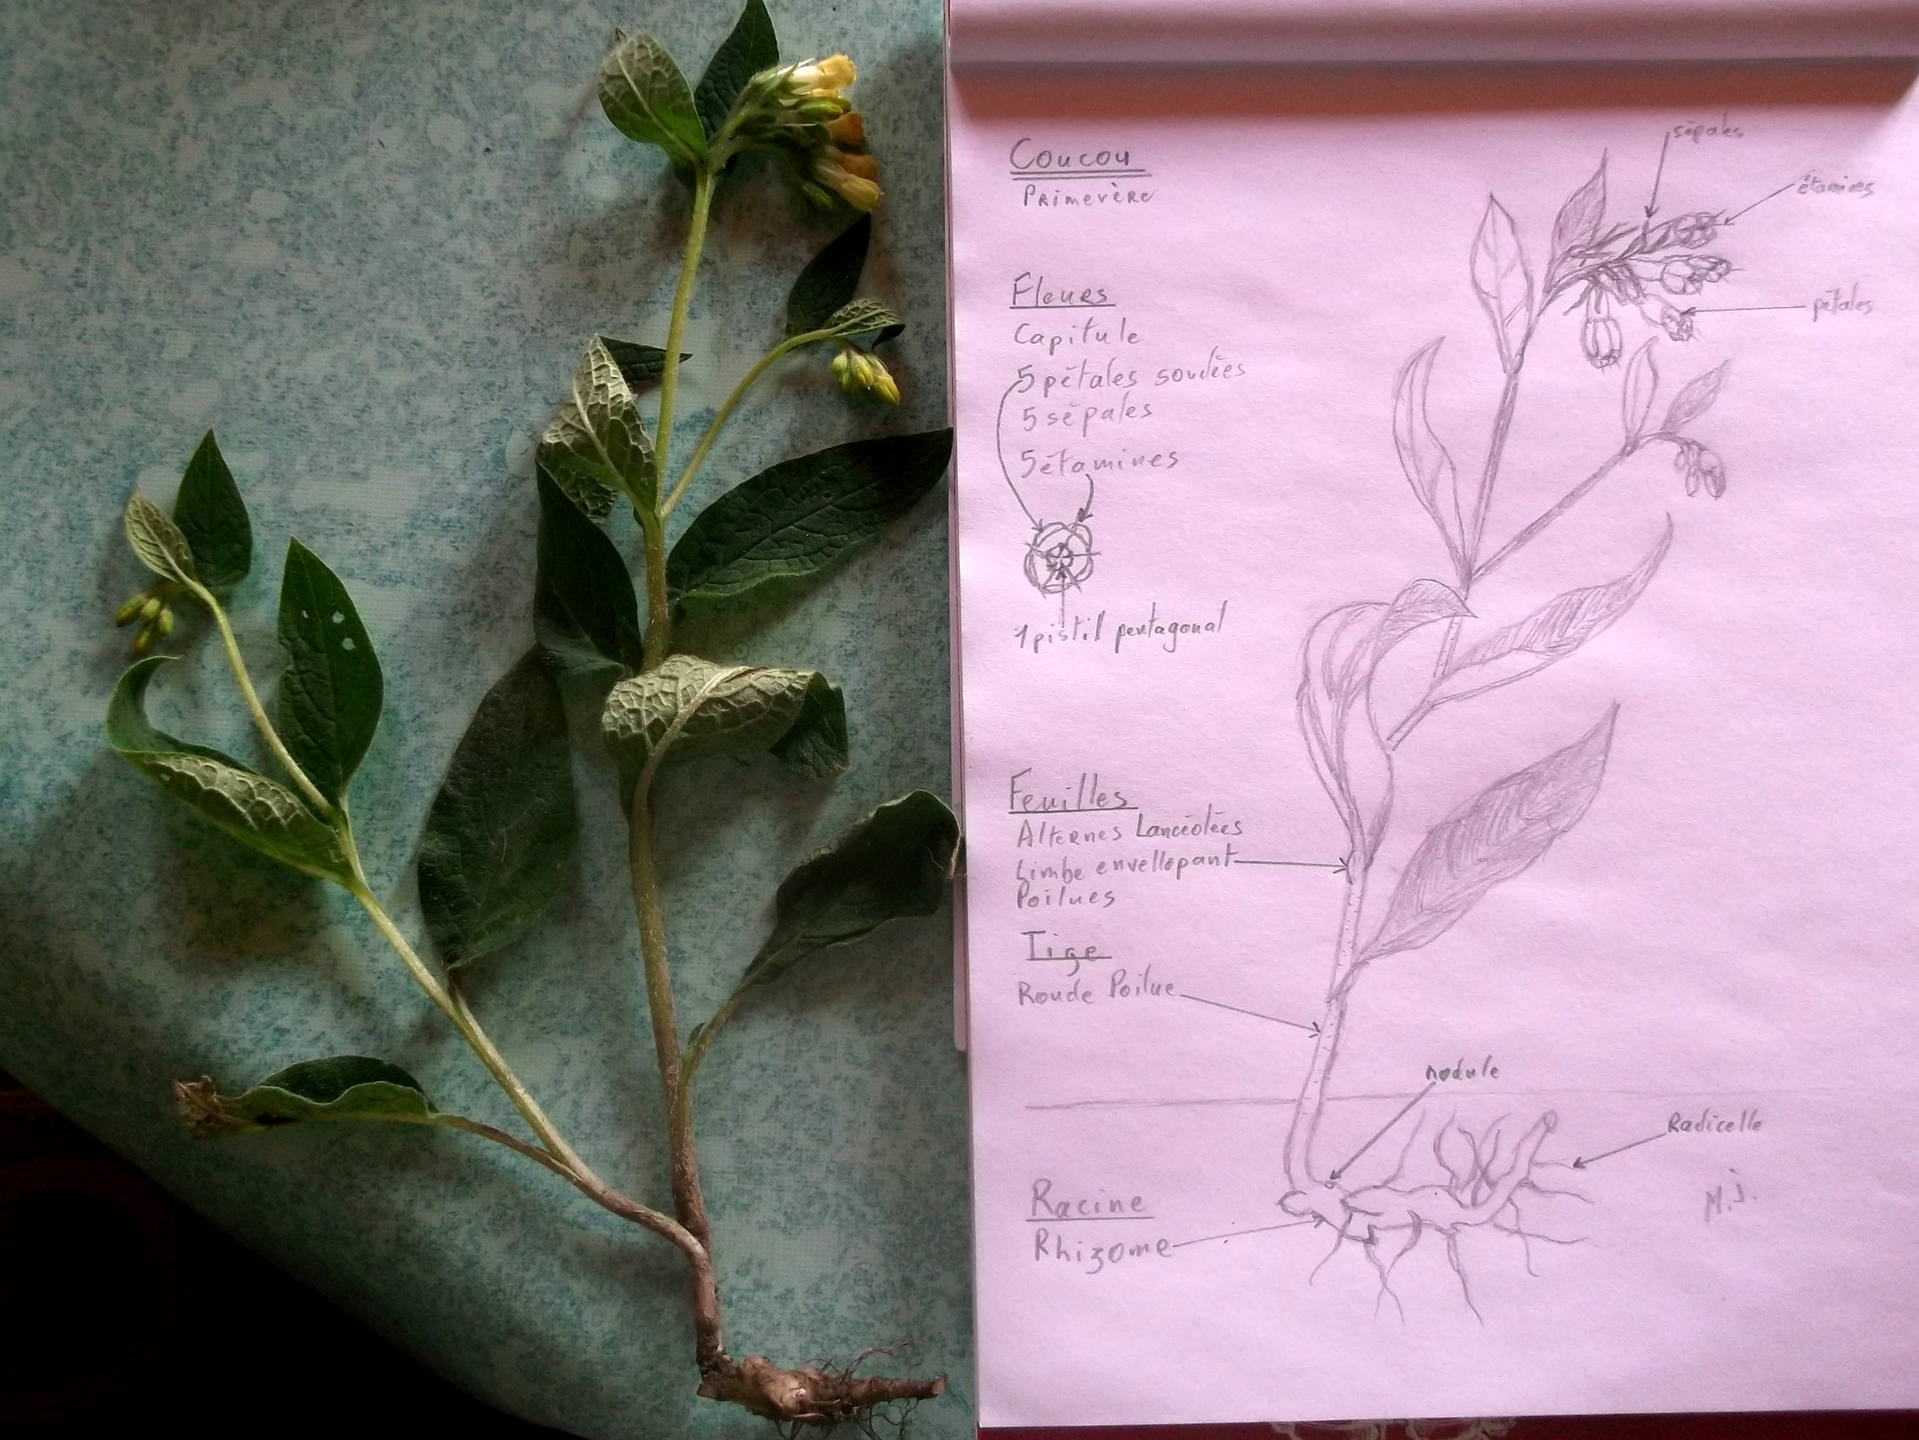 Coucou
Primevère
sépales
étamines
pétales
Fleurs
Capitule
5 pétales soudées
5 sépales
5 étamines
1 pistil pentagonal
Feuilles
Alternes Lancéolées
Limbe envellopant
Poilues
Tige
Ronde Poilue
nodule
Radicelle
Racine
Rhizome
M.J.